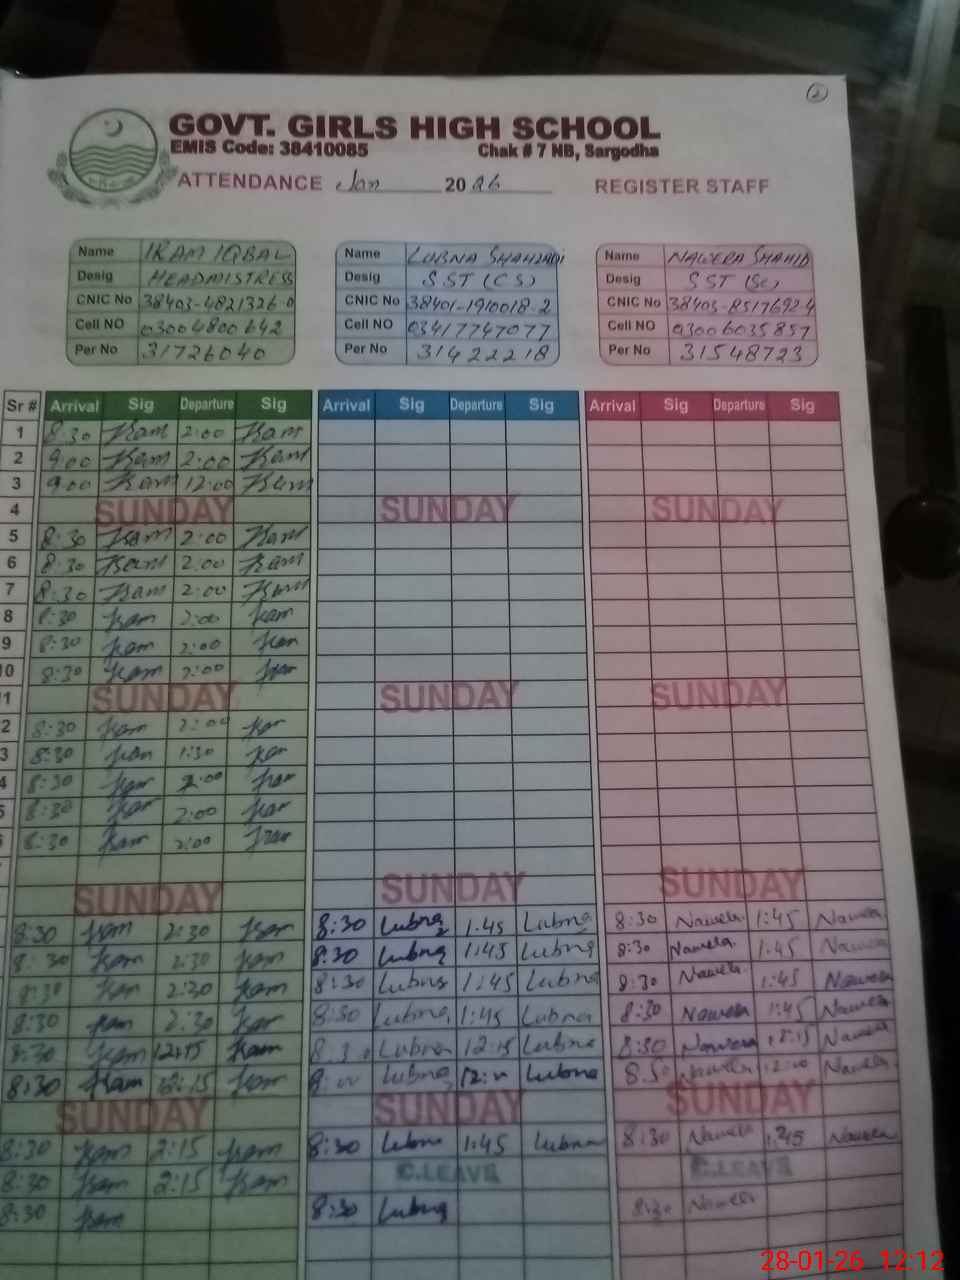 2
GOVT. GIRLS HIGH SCHOOL
EMIS Code: 38410085 Chak # 7 NB, Sargodha
ATTENDANCE Jan 2026 REGISTER STAFF
Name IRAM IQBAL Name LUBNA SHAHZADI Name NAWERA SHAHID
Desig HEADMISTRESS Desig SST (CS) Desig SST (Sc)
CNIC No 38403-4821326-0 CNIC No 38401-1910018-2 CNIC No 38403-8517692-4
Cell NO 03004800642 Cell NO 03417747077 Cell NO 03006035857
Per No 31726040 Per No 31422218 Per No 31548723
Sr # Arrival Sig Departure Sig Arrival Sig Departure Sig Arrival Sig Departure Sig
1 8:30 Iram 2:00 Iram
2 9:00 Iram 2:00 Iram
3 9:00 Iram 12:00 Iram
4 SUNDAY SUNDAY SUNDAY
5 8:30 Iram 2:00 Iram
6 8:30 Iram 2:00 Iram
7 8:30 Iram 2:00 Iram
8 8:30 Iram 2:00 Iram
9 8:30 Iram 2:00 Iram
10 8:30 Iram 2:00 Iram
1 SUNDAY SUNDAY SUNDAY
2 8:30 Iram 2:00
3 8:30 Iram 1:30
4 8:30 Iram 2:00 Iram
5 8:30 Iram 2:00 Iram
8:30 Iram 2:00 Iram
SUNDAY SUNDAY SUNDAY
8:30 Iram 2:30 Iram 8:30 Lubna 1:45 Lubna 8:30 Nawera 1:45 Nawera
8:30 Iram 2:30 Iram 8:30 Lubna 1:45 Lubna 8:30 Nawera 1:45 Nawera
8:30 Iram 2:30 Iram 8:30 Lubna 1:45 Lubna 8:30 Nawera 1:45 Nawera
8:30 Iram 2:30 Iram 8:30 Lubna 1:45 Lubna 8:30 Nawera 1:45 Nawera
8:30 Iram 12:15 Iram 8:30 Lubna 12:15 Lubna 8:30 Nawera 12:15 Nawera
8:30 Iram 12:15 Iram Lubna Lubna 8:30 Nawera 12:00 Nawera
SUNDAY SUNDAY SUNDAY
8:30 Iram 2:15 Iram 8:30 Lubna 1:45 Lubna 8:30 Nawera 1:45 Nawera
8:30 Iram 2:15 Iram C.LEAVE C.LEAVE
8:30 Iram 8:30 Lubna 8:30 Nawera
28-01-26 12:12